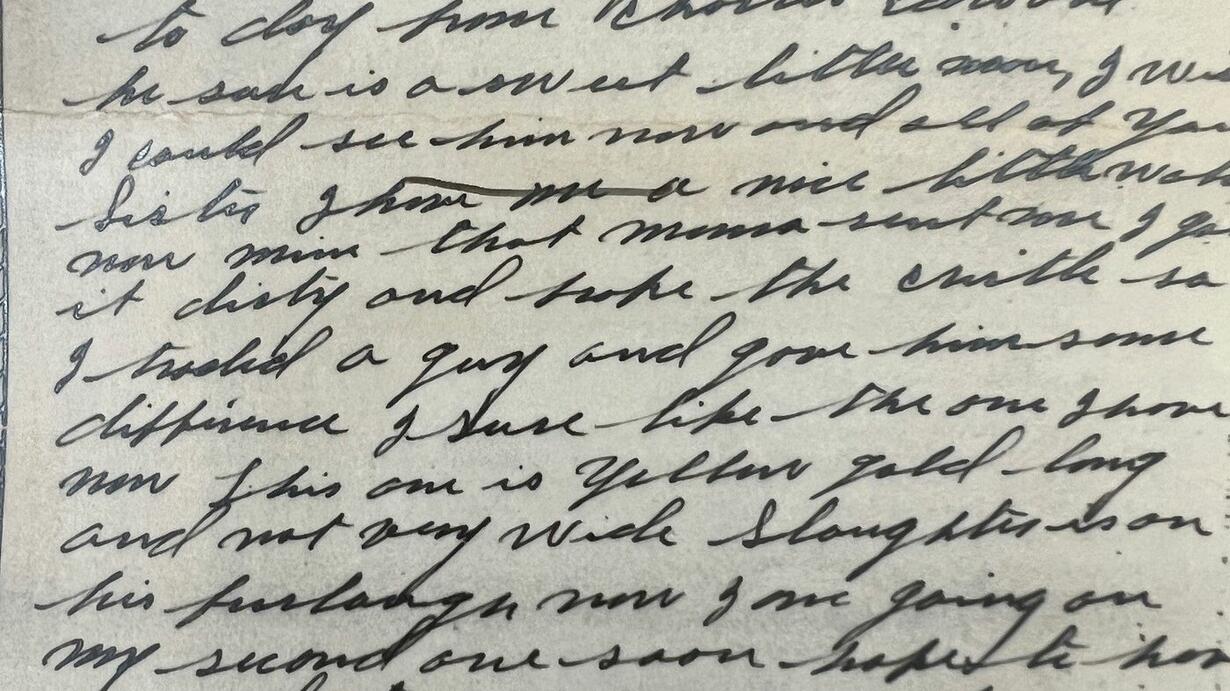 to day from Charles Edward
he sure is a sweet little man, I wi
I could see him now and all of You
Sister I have me a nice little watch
now mine that mama sent me I go
it dirty and broke the cristle so
I traded a guy and gave him some
diffirence I Sure like the one I have
now This one is Yellow gold long
and not very Wide Slaughter is on
his furlough now I am going on
my second one soon hope to hav